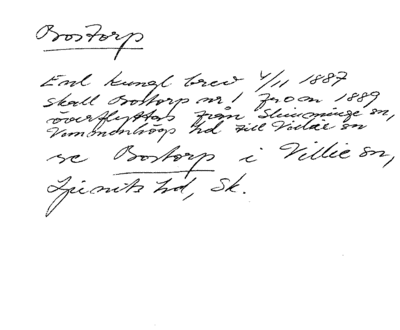 Bostorp
Enl kungl brev 4/11 1887
skall Bostorp nr 1 fr o m 1889
överflyttas från Slimminge sn,
Vemmenhögs hd till Villie sn
se Bostorp i Villie sn,
Ljunits hd, Sk.